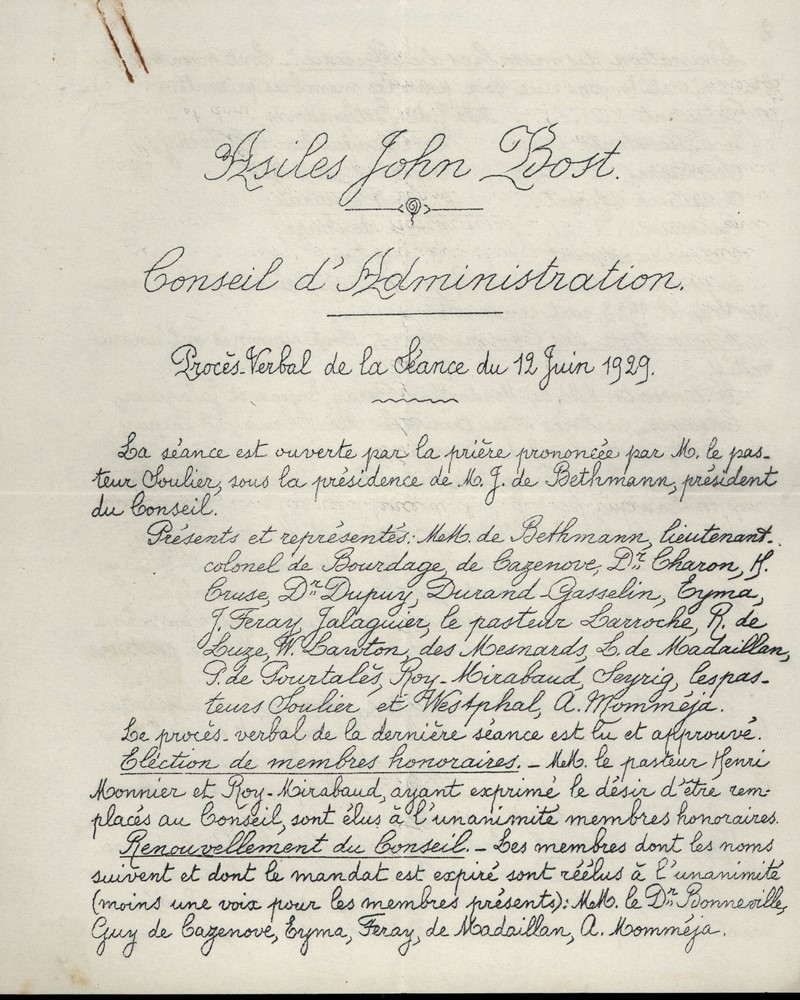 Asiles John Bost.
Conseil d'Administration.
Procès-Verbal de la Séance du 12 Juin 1929.
La séance est ouverte par la prière prononcée par M. le pas-
teur Soulier, sous la présidence de M. J. de Bethmann, président
du Conseil.
Présents et représentés: MM. de Bethmann, lieutenant-
colonel de Bourdage, de Cazenove, Dr Charon, H.
Cruse, Dr Dupuy, Durand-Gasselin, Eyma,
J. Feray, Jalaguier, le pasteur Larroche, R. de
Luze, W. Lawton, des Mesnards, L. de Madaillan,
P. de Pourtalès, Roy-Mirabaud, Seyrig, les pas-
teurs Soulier et Westphal, A. Momméja.
Le procès-verbal de la dernière séance est lu et approuvé.
Eléction de membres honoraires. - MM. le pasteur Henri
Monnier et Roy-Mirabaud, ayant exprimé le désir d'être rem-
placés au Conseil, sont élus à l'unanimité membres honoraires.
Renouvellement du Conseil. - Les membres dont les noms
suivent et dont le mandat est expiré sont réélus à l'unanimité
(moins une voix pour les membres présents): MM. le Dr Bonneville,
Guy de Cazenove, Eyma, Feray, de Madaillan, A. Momméja.